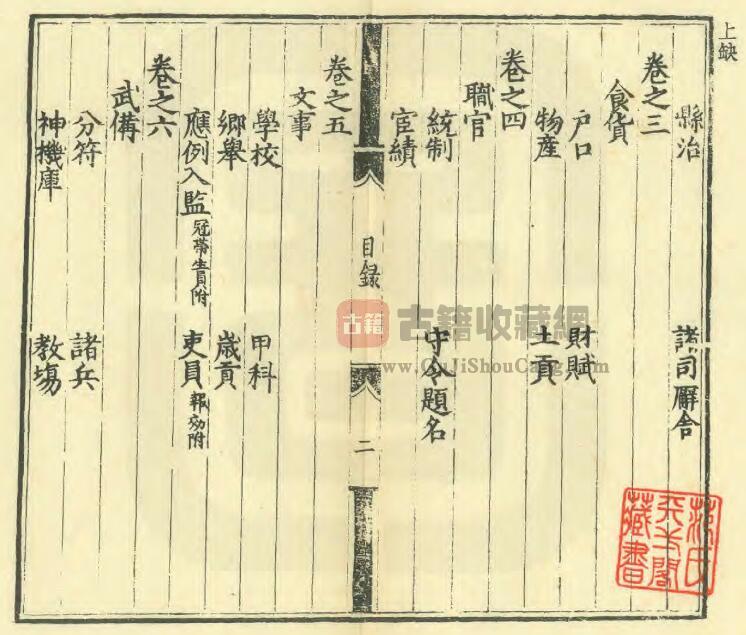 上缺
縣治 諸司廨舍
卷之三
食貨
戶口 財賦
物產 土貢
卷之四
職官
統制 守令題名
宦績
目録
二
卷之五
文事
學校 甲科
鄉舉 歲貢
應例入監冠帶生員附 吏員報効附
卷之六
武備
分符 諸兵
神機庫 教場
范氏天一閣藏書
古籍
古籍收藏網
www.GuJiShouCang.com